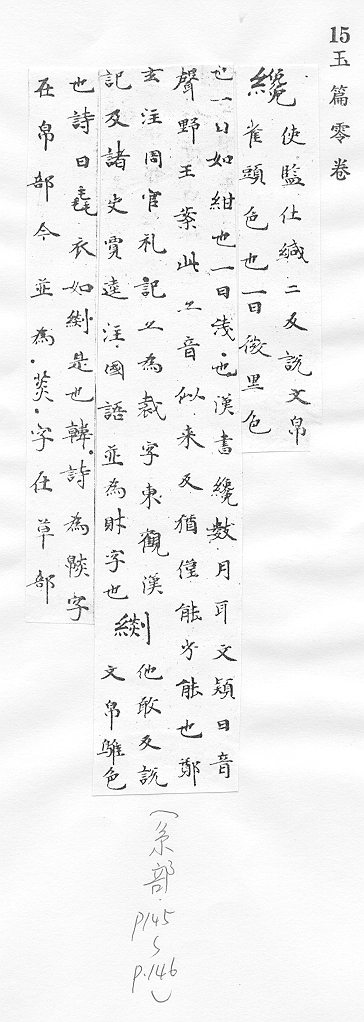 15玉篇零卷
纔 使監仕緘二反說文帛
雀頭色也一曰微黑色
也一曰如紺也一曰淺也漢書纔數月耳文穎曰音
聲野王案此亦音似来反猶僅能少能也鄭
玄注周官礼記亦為裁字東觀漢
記及諸史賈逵注國語並為財字也 緂 他敢反說
文帛騅色
也詩曰毳衣如緂是也韓詩為䌨字
在帛部今並為菼字在草部
(糸部
p.145
〜
p.146)